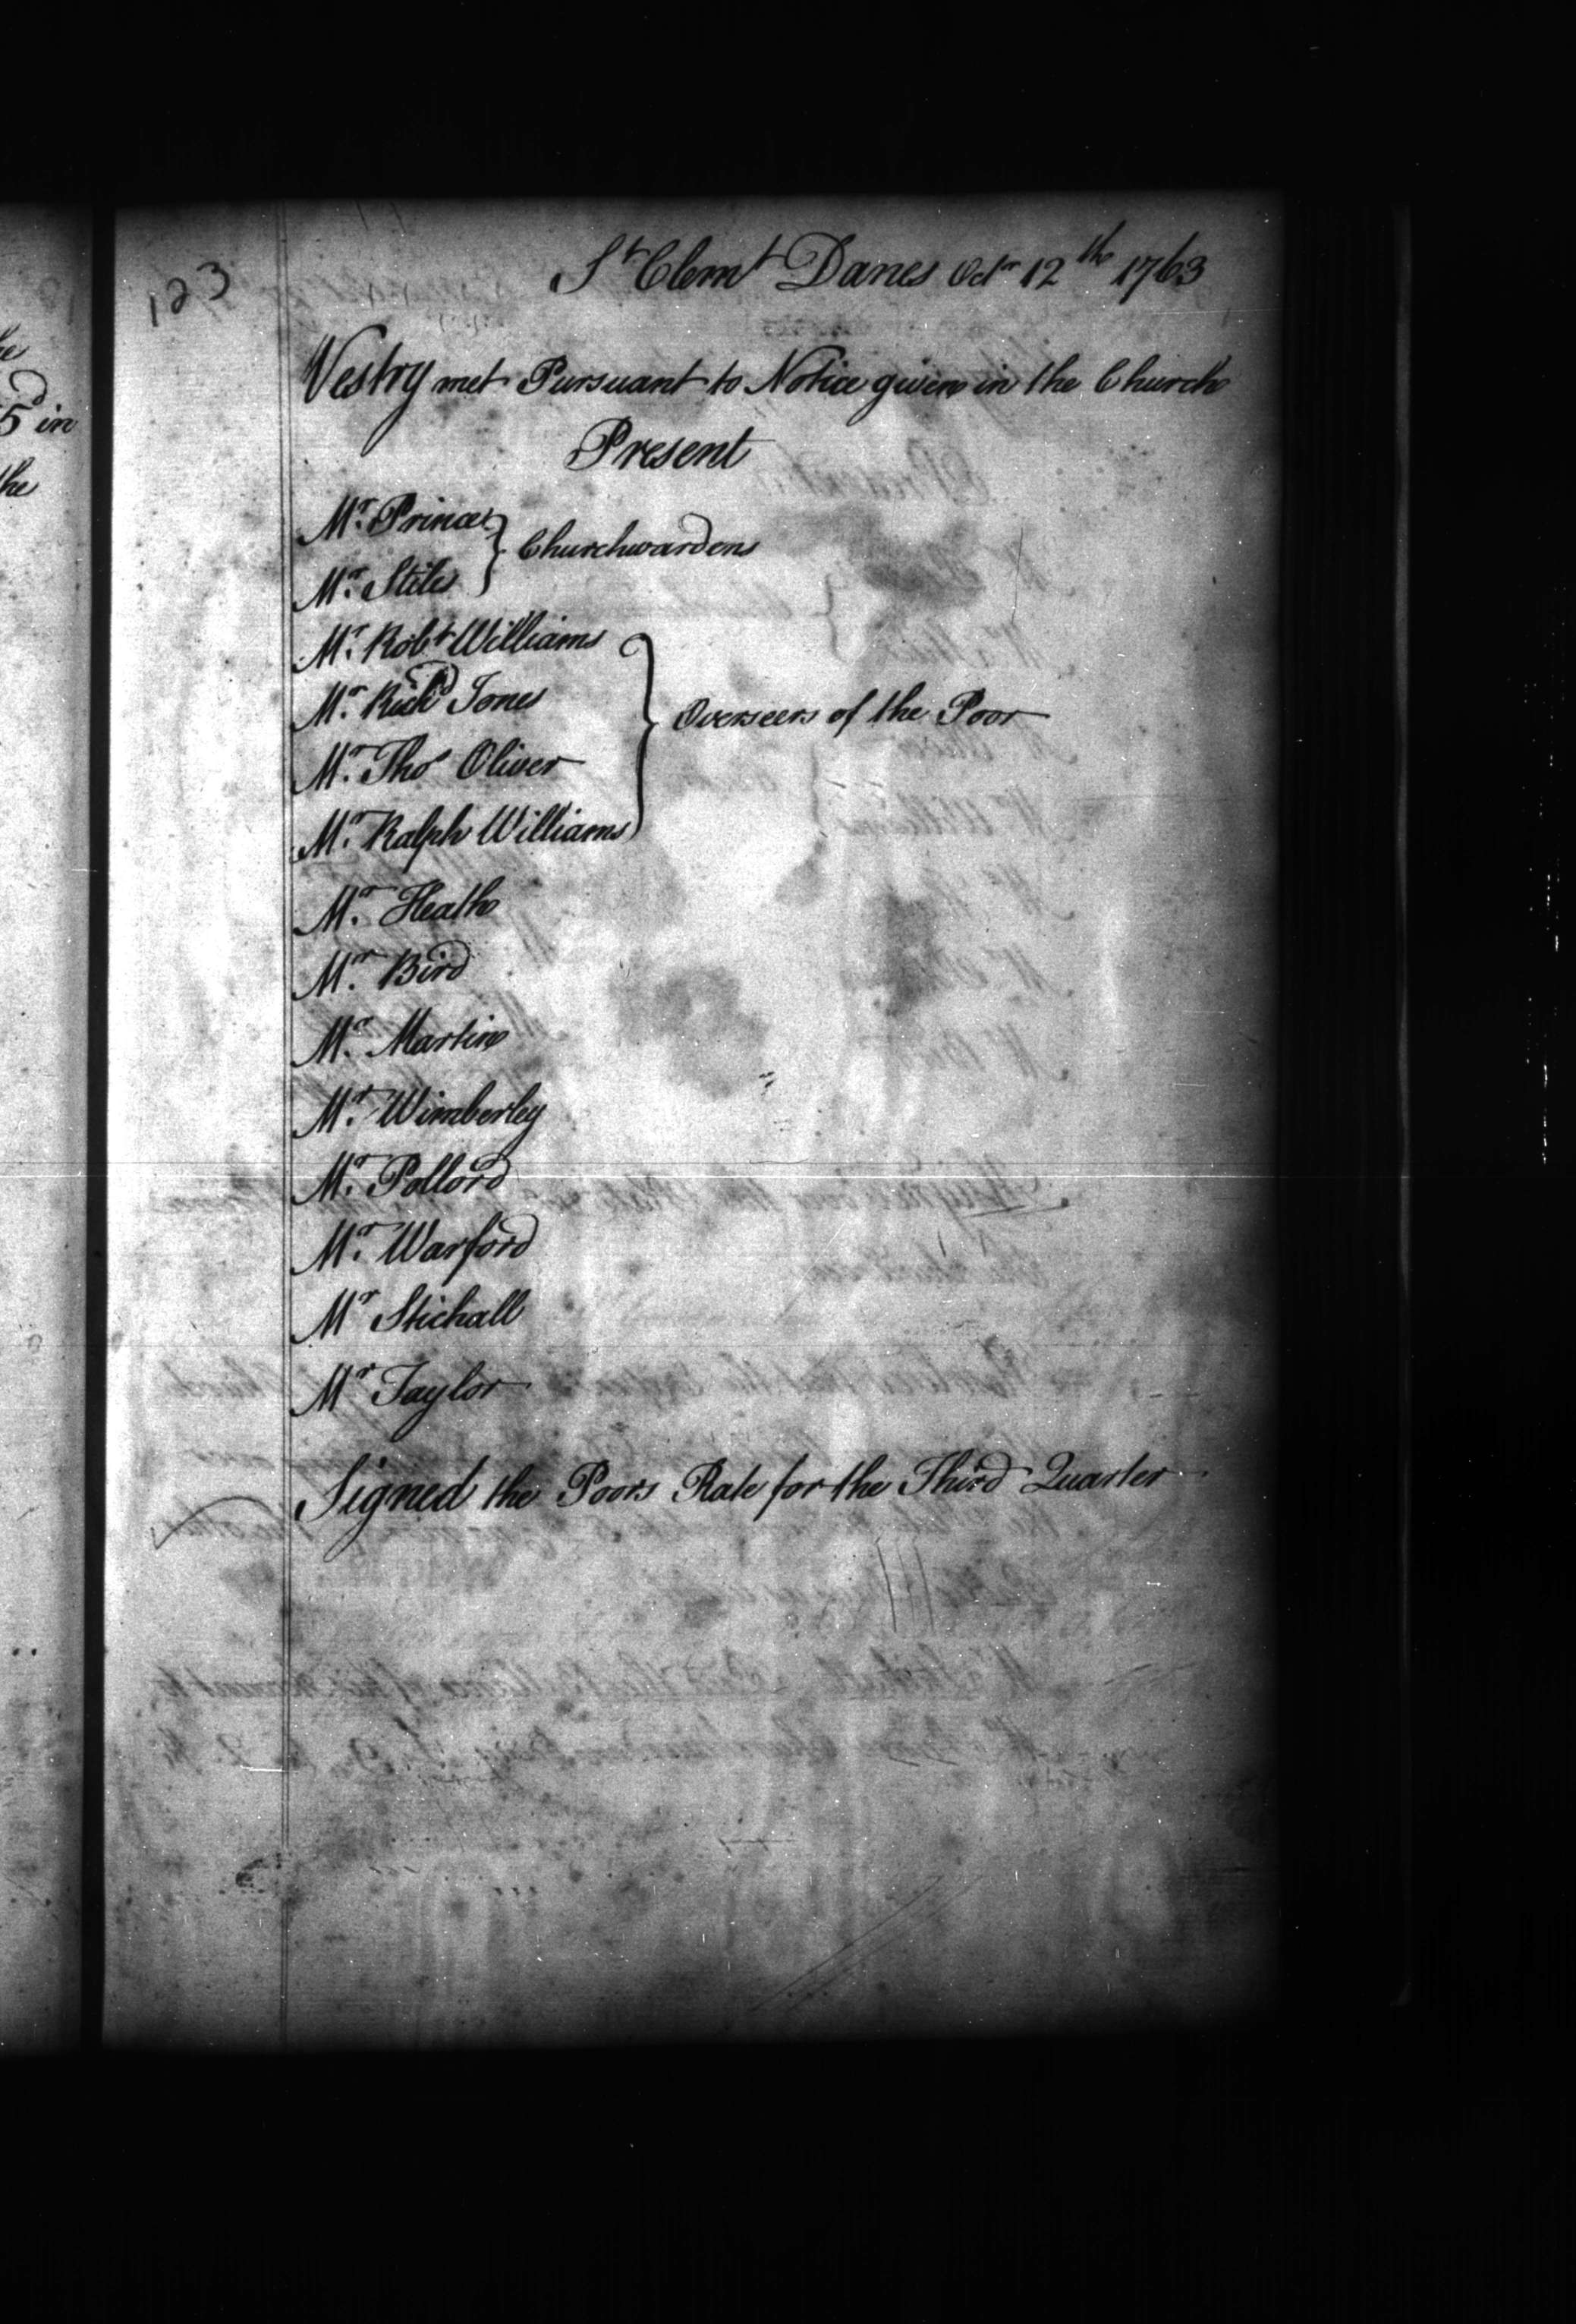 123
St Clemt Danes Octr 12th 1763
Vestry met Pursuant to Notice given in the Church
Present
Mr. Prince
Churchwardens
Mr. Stiles
Mr. Robt Williams
Mr. Richd Jones
Overseers of the Poor
Mr. Thos Oliver
Mr. Ralph Williams
Mr. Heath
Mr. Bird
Mr. Martin
Mr. Wimberley
Mr. Pollord
Mr. Warford
Mr Stichall
Mr Taylor
Signed the Poors Rate for the Third Quarter
5d in
the